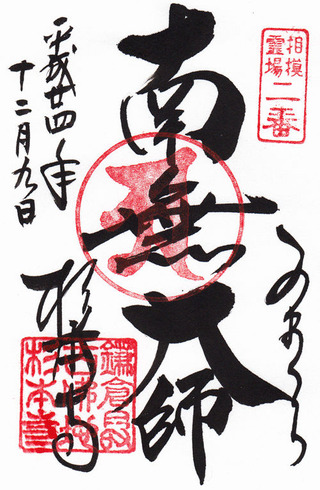 相模
霊場
二番
かまくら
南無大師
平成廿四年
十二月九日
杉本寺
杉本寺